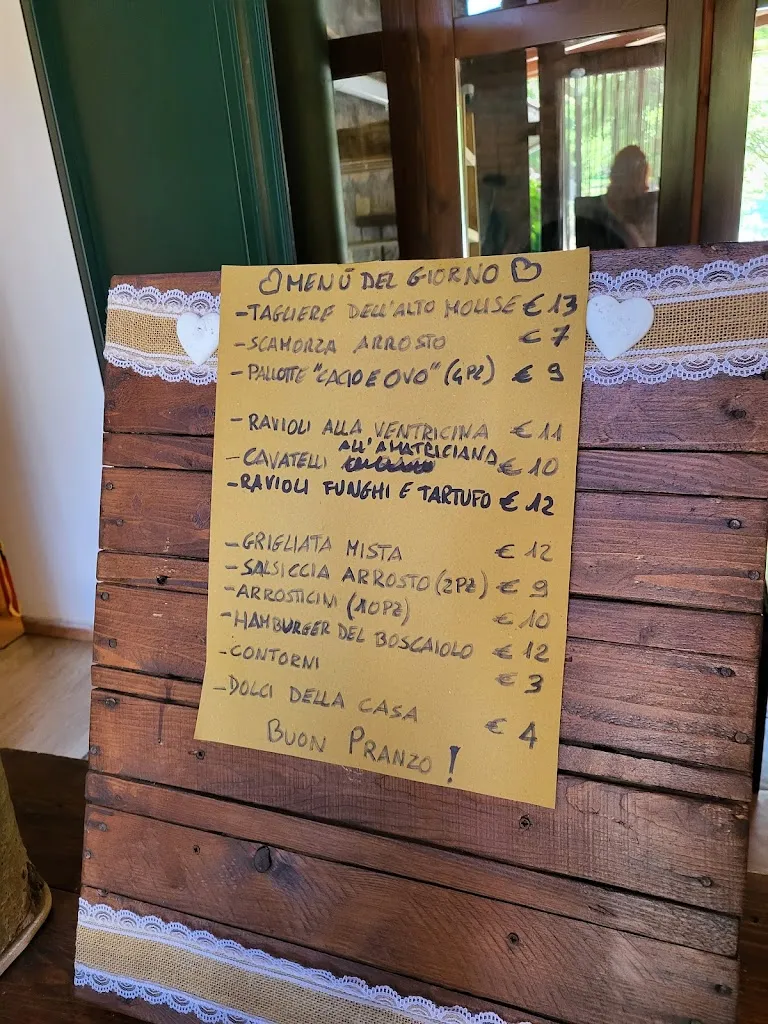 MENÚ DEL GIORNO
- TAGLIERE DELL'ALTO MOLISE € 13
- SCAMORZA ARROSTO € 7
- PALLOTTE "CACIO E OVO" (4PZ) € 9
- RAVIOLI ALLA VENTRICINA € 11
- CAVATELLI ALL'AMATRICIANA € 10
- RAVIOLI FUNGHI E TARTUFO € 12
- GRIGLIATA MISTA € 12
- SALSICCIA ARROSTO (2PZ) € 9
- ARROSTICINI (10PZ) € 10
- HAMBURGER DEL BOSCAIOLO € 12
- CONTORNI € 3
- DOLCI DELLA CASA € 4
BUON PRANZO!